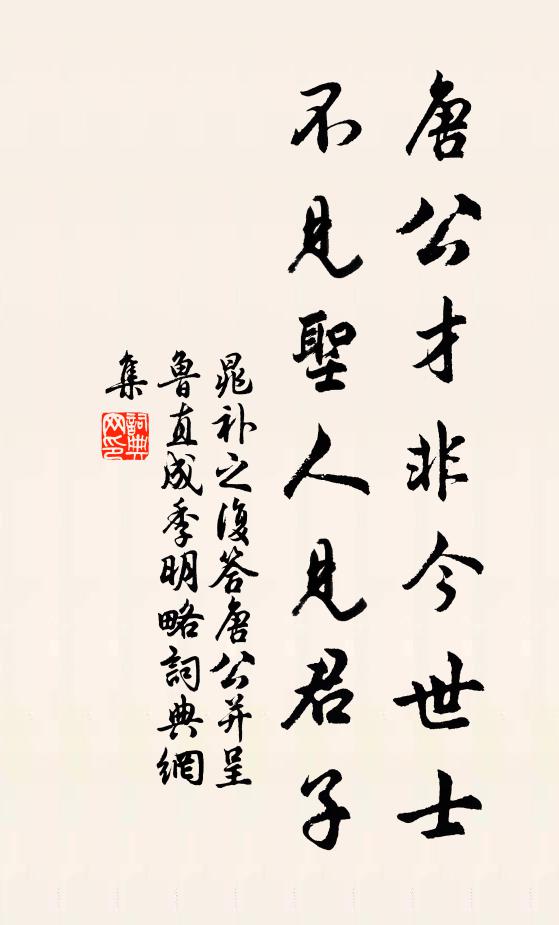 唐公才非今世士
不見聖人見君子
晁补之復答唐公并呈
魯直成季明略詞典網
集
詞典
网印